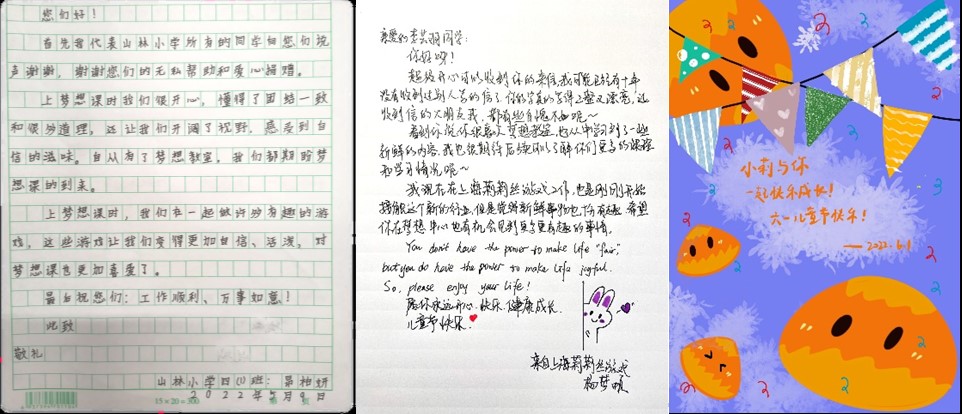 您们好！
首先我代表山林小学所有的同学向您们说
声谢谢，谢谢您们的无私帮助和爱心捐赠。
上梦想课时我们很开心，懂得了团结一致
和很多道理，这让我们开阔了视野，感受到自
信的滋味。自从有了梦想教室，我们都期盼梦
想课的到来。
上梦想课时，我们在一起做许多有趣的游
戏，这些游戏让我们变得更加自信、活泼，对
梦想课也更加喜爱了。
最后祝您们：工作顺利、万事如意！
此致
敬礼
山林小学四(1)班：
2022年5月9日
15×20=300
亲爱的同学：
你好呀！
超级开心可以收到你的来信，我可能已经有十年
没有收到过别人写的信了，你的字真的写得工整又漂亮，让
收到信的大朋友我，都有些自愧不如呢～
看到你说你很喜欢梦想课堂，也从中学习到了一些
新鲜的内容，我也很期待后续可以了解你们更多的课程
和学习情况呢～
我现在在上海莉莉丝游戏工作，也是刚刚开始
接触这个新的行业，但是觉得新鲜事物也很有趣，希望
你在梦想中心也有机会见到更多更有趣的事情。
You don't have the power to make life "fair",
but you do have the power to make life joyful.
So, please enjoy your life!
愿你永远开心、快乐、健康成长。
儿童节快乐.
来自上海莉莉丝游戏
小莉与你
一起快乐成长！
六一儿童节快乐！
——2022.6.1